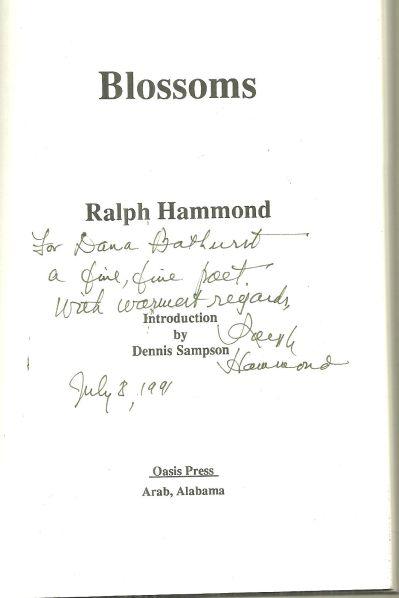 Blossoms
Ralph Hammond
For Dana Bathurst
a fine, fine poet.
With warmest regards,
Introduction
by
Dennis Sampson
Ralph
Hammond
July 8, 1991
Oasis Press
Arab, Alabama